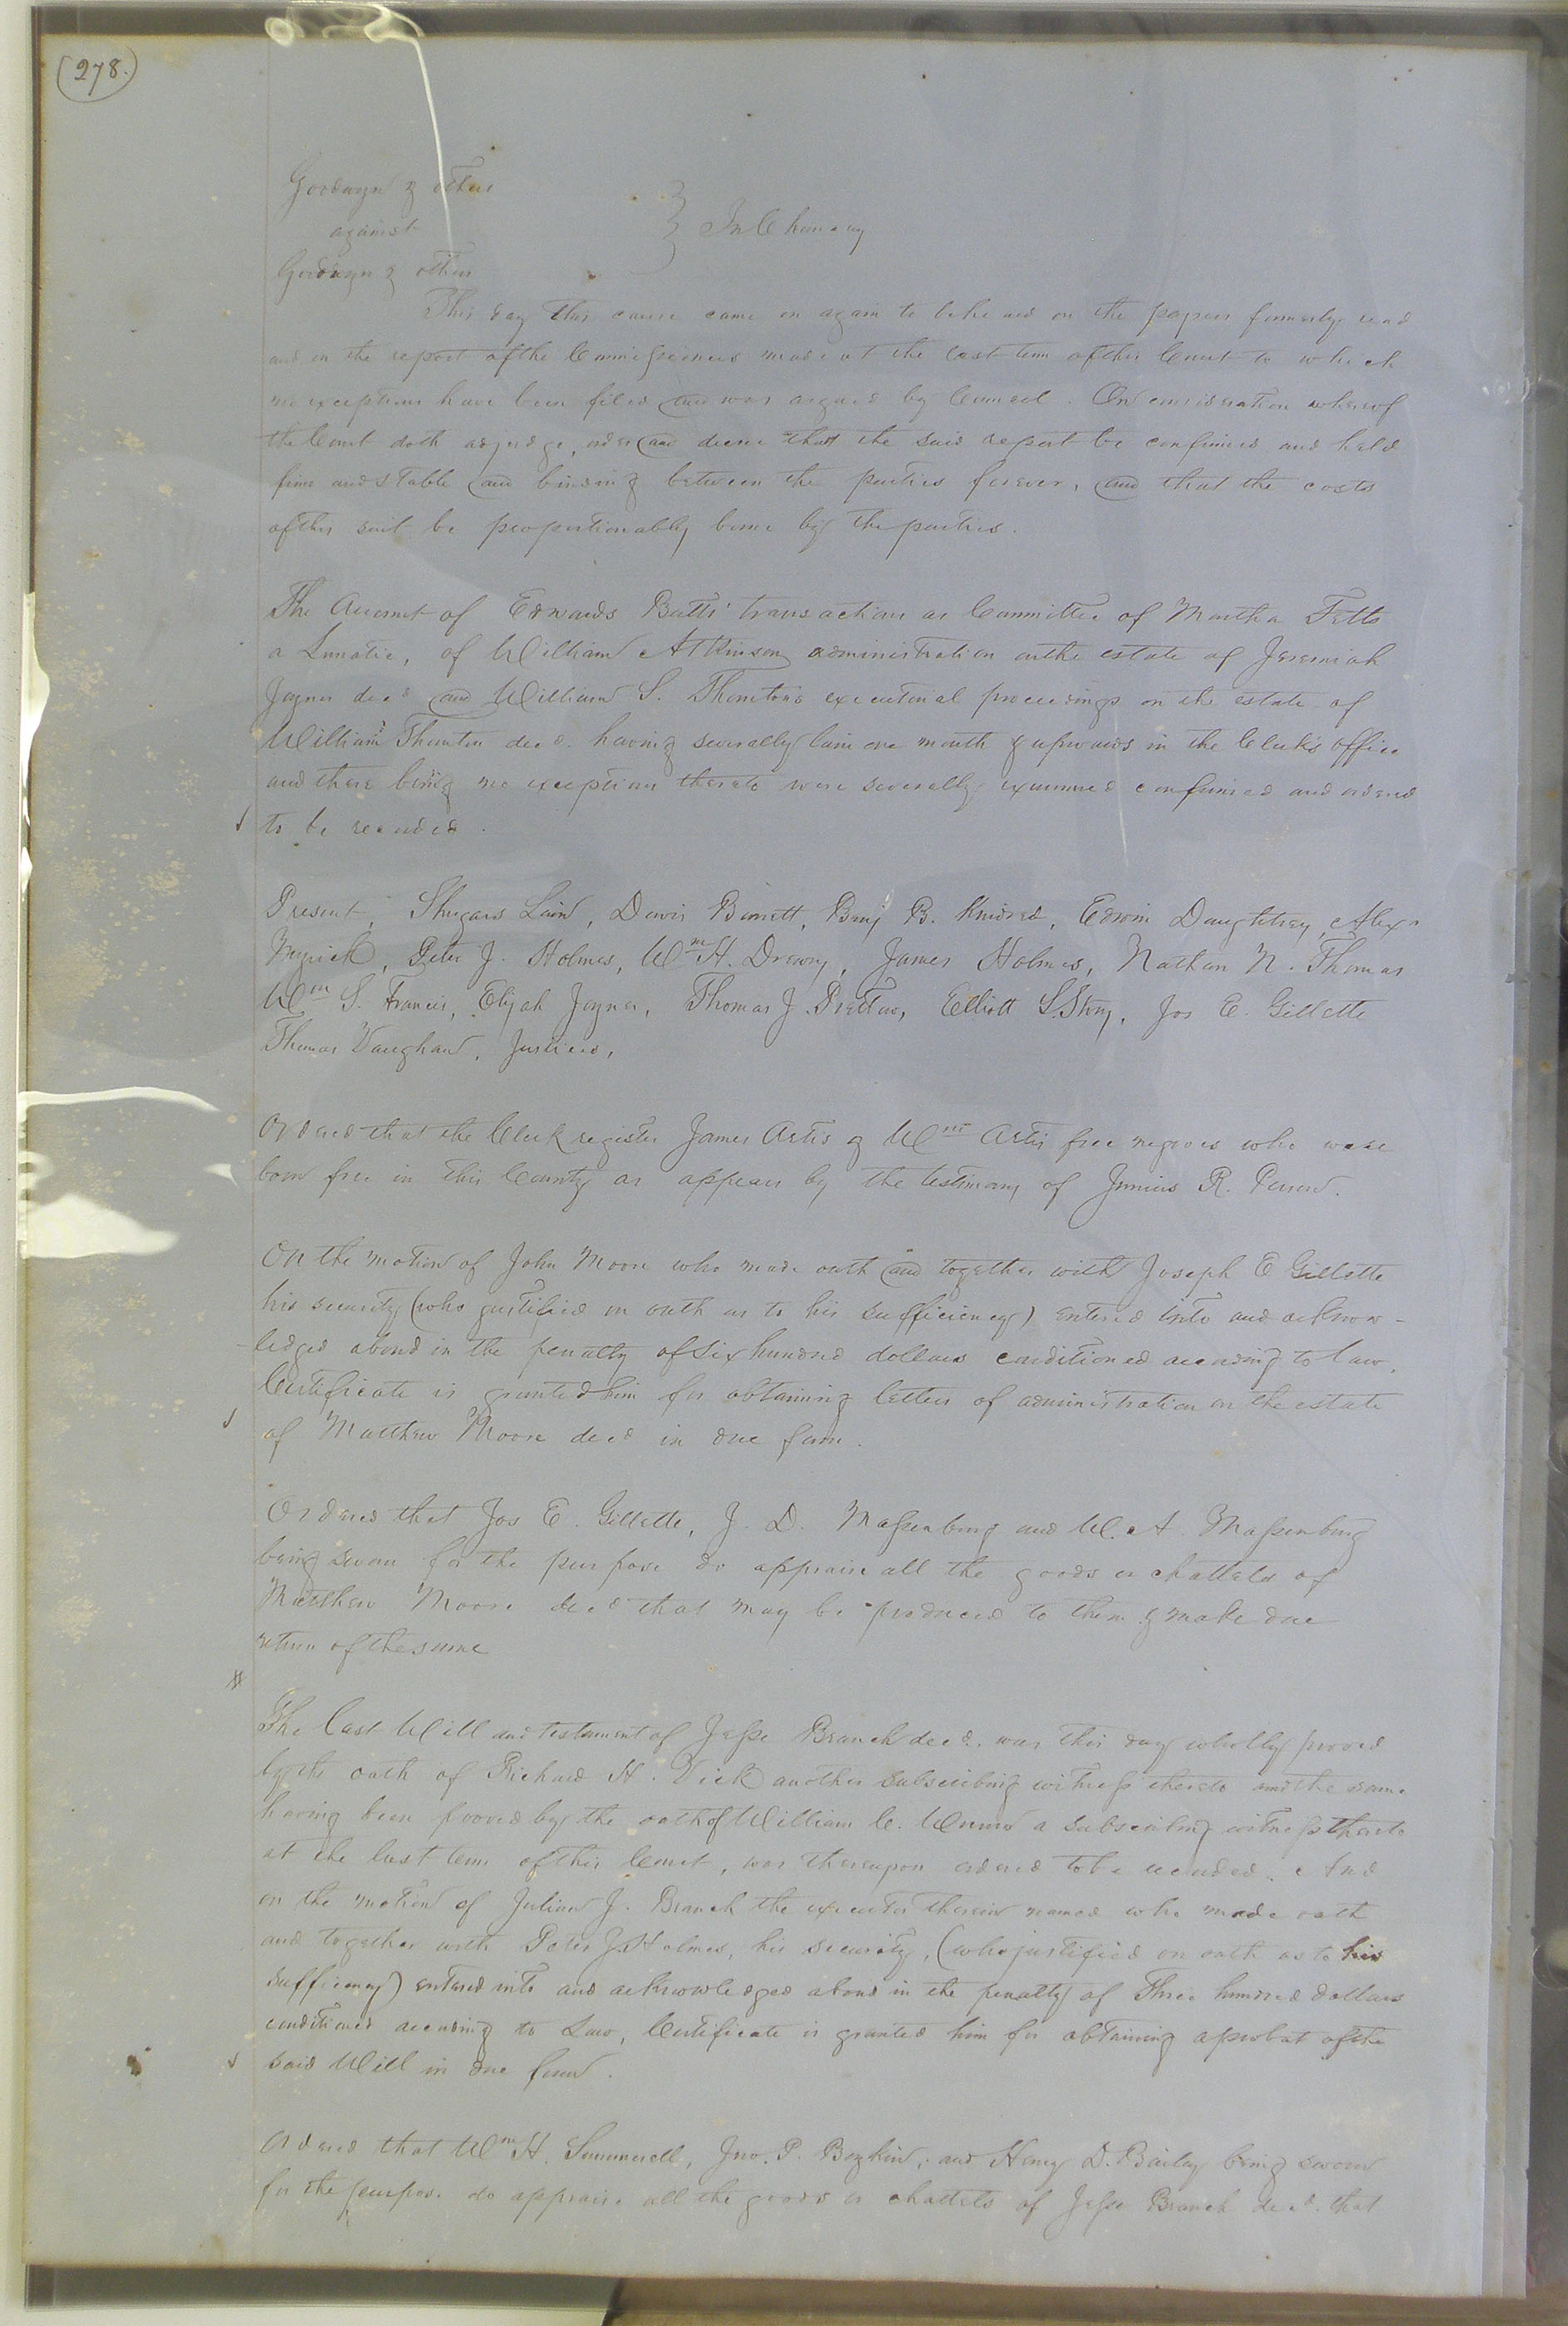 (278.)
Goodwyn & others
against
In Chancery
Goodwyn & others
This day this cause came on again to be heard on the papers formerly read
and on the report of the Commissioners made at the last term of this Court to which
no exceptions have been filed and was argued by Counsel. On consideration whereof
the Court doth adjudge, order and decree that the said report be confirmed and held
firm and stable and binding between the parties forever, and that the costs
of this suit be proportionably borne by the parties.
The Account of Edwards Butts' transactions as Committee of Martha Fetts
a Lunatic, of William Atkinson administration on the estate of Jeremiah
Joyner decd and William S. Thornton's executorial proceedings on the estate of
William Thornton decd. having severally lain one month & upwards in the Clerk's office
and there being no exceptions thereto were severally examined confirmed and ordered
to be recorded.
Present, Shugars Lain, Dewis Barrett, Benj B. Kindred, Edwin Daughtrey, Alexr
Myrick, Peter J. Holmes, Wm H. Drewry, James Holmes, Nathan N. Thomas
Wm S. Francis, Elijah Joyner, Thomas J. Pretlow, Elliott L. Story, Jos E. Gillette
Thomas Vaughan, Justices,
Ordered that the Clerk register James Artis & Wm Artis free negroes who were
born free in this County as appears by the testimony of Junius R.
On the motion of John Moore who made oath and together with Joseph E Gillette
his security (who justified on oath as to his sufficiency) entered into and acknow-
-ledged a bond in the penalty of six hundred dollars conditioned according to law,
Certificate is granted him for obtaining letters of administration on the estate
of Matthew Moore decd in due form.
Ordered that Jos E. Gillette, J. D. Massenburg and W. A. Massenburg
being sworn for the purpose do appraise all the goods or chattels of
Matthew Moore decd that may be produced to them & make due
return of the same
The last Will and testament of Jesse Branch decd. was this day wholly proved
by the oath of Richard H. Vick another subscribing witness thereto and the same
having been proved by the oath of William C. a subscribing witness thereto
at the last term of this Court, was thereupon ordered to be recorded. And
on the motion of Julian J. Branch the executor therein named who made oath
and together with Peter J. Holmes, his security, (who justified on oath as to his
sufficiency) entered into and acknowledged a bond in the penalty of Three hundred dollars
conditioned according to Law, Certificate is granted him for obtaining a probat of the
said Will in due form.
Ordered that Wm H. Summerell, Jno. P. Boykin, and Henry D. Bailey being sworn
for the purpose do appraise all the goods or chattels of Jesse Branch decd. that